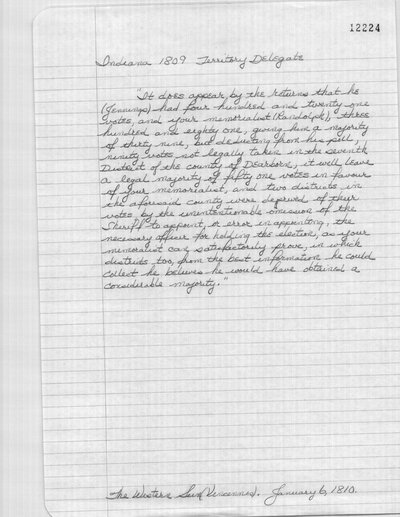 12224
Indiana 1809 Territory Delegate
"It does appear by the returns that he
(Jennings) had four hundred and twenty one
votes, and your memorialist (Randolph), three
hundred and eighty one, giving him a majority
of thirty nine, but deducting from his poll,
ninety votes not legally taken in the seventh
District of the county of Dearborn, it will leave
a legal majority of fifty one votes in favour
of your memorialist, and two districts in
the aforesaid county were deprived of their
votes by the unintentionable omission of the
Sheriff to appoint, or error in appointing, the
necessary officer for holding the election, as your
memorialist can satisfactorily prove, in which
districts too, from the best information he could
collect he believes he would have obtained a
considerable majority."
The Western Sun (Vincennes). January 6, 1810.